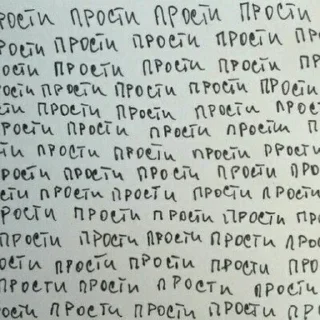 рости прости прости прости
рости прости прости прости
ости прости прости прости пр
ости прости прости прости прости
сти прости прости прости прост
рости прости прости прости п
ти прости прости прости прости
рости прости прости прости про
сти прости прости прости прост
рости прости прости прости п
рости прости прости прост
ости прости прости прости про
рости прости прости прости п
ости прости прости прости про